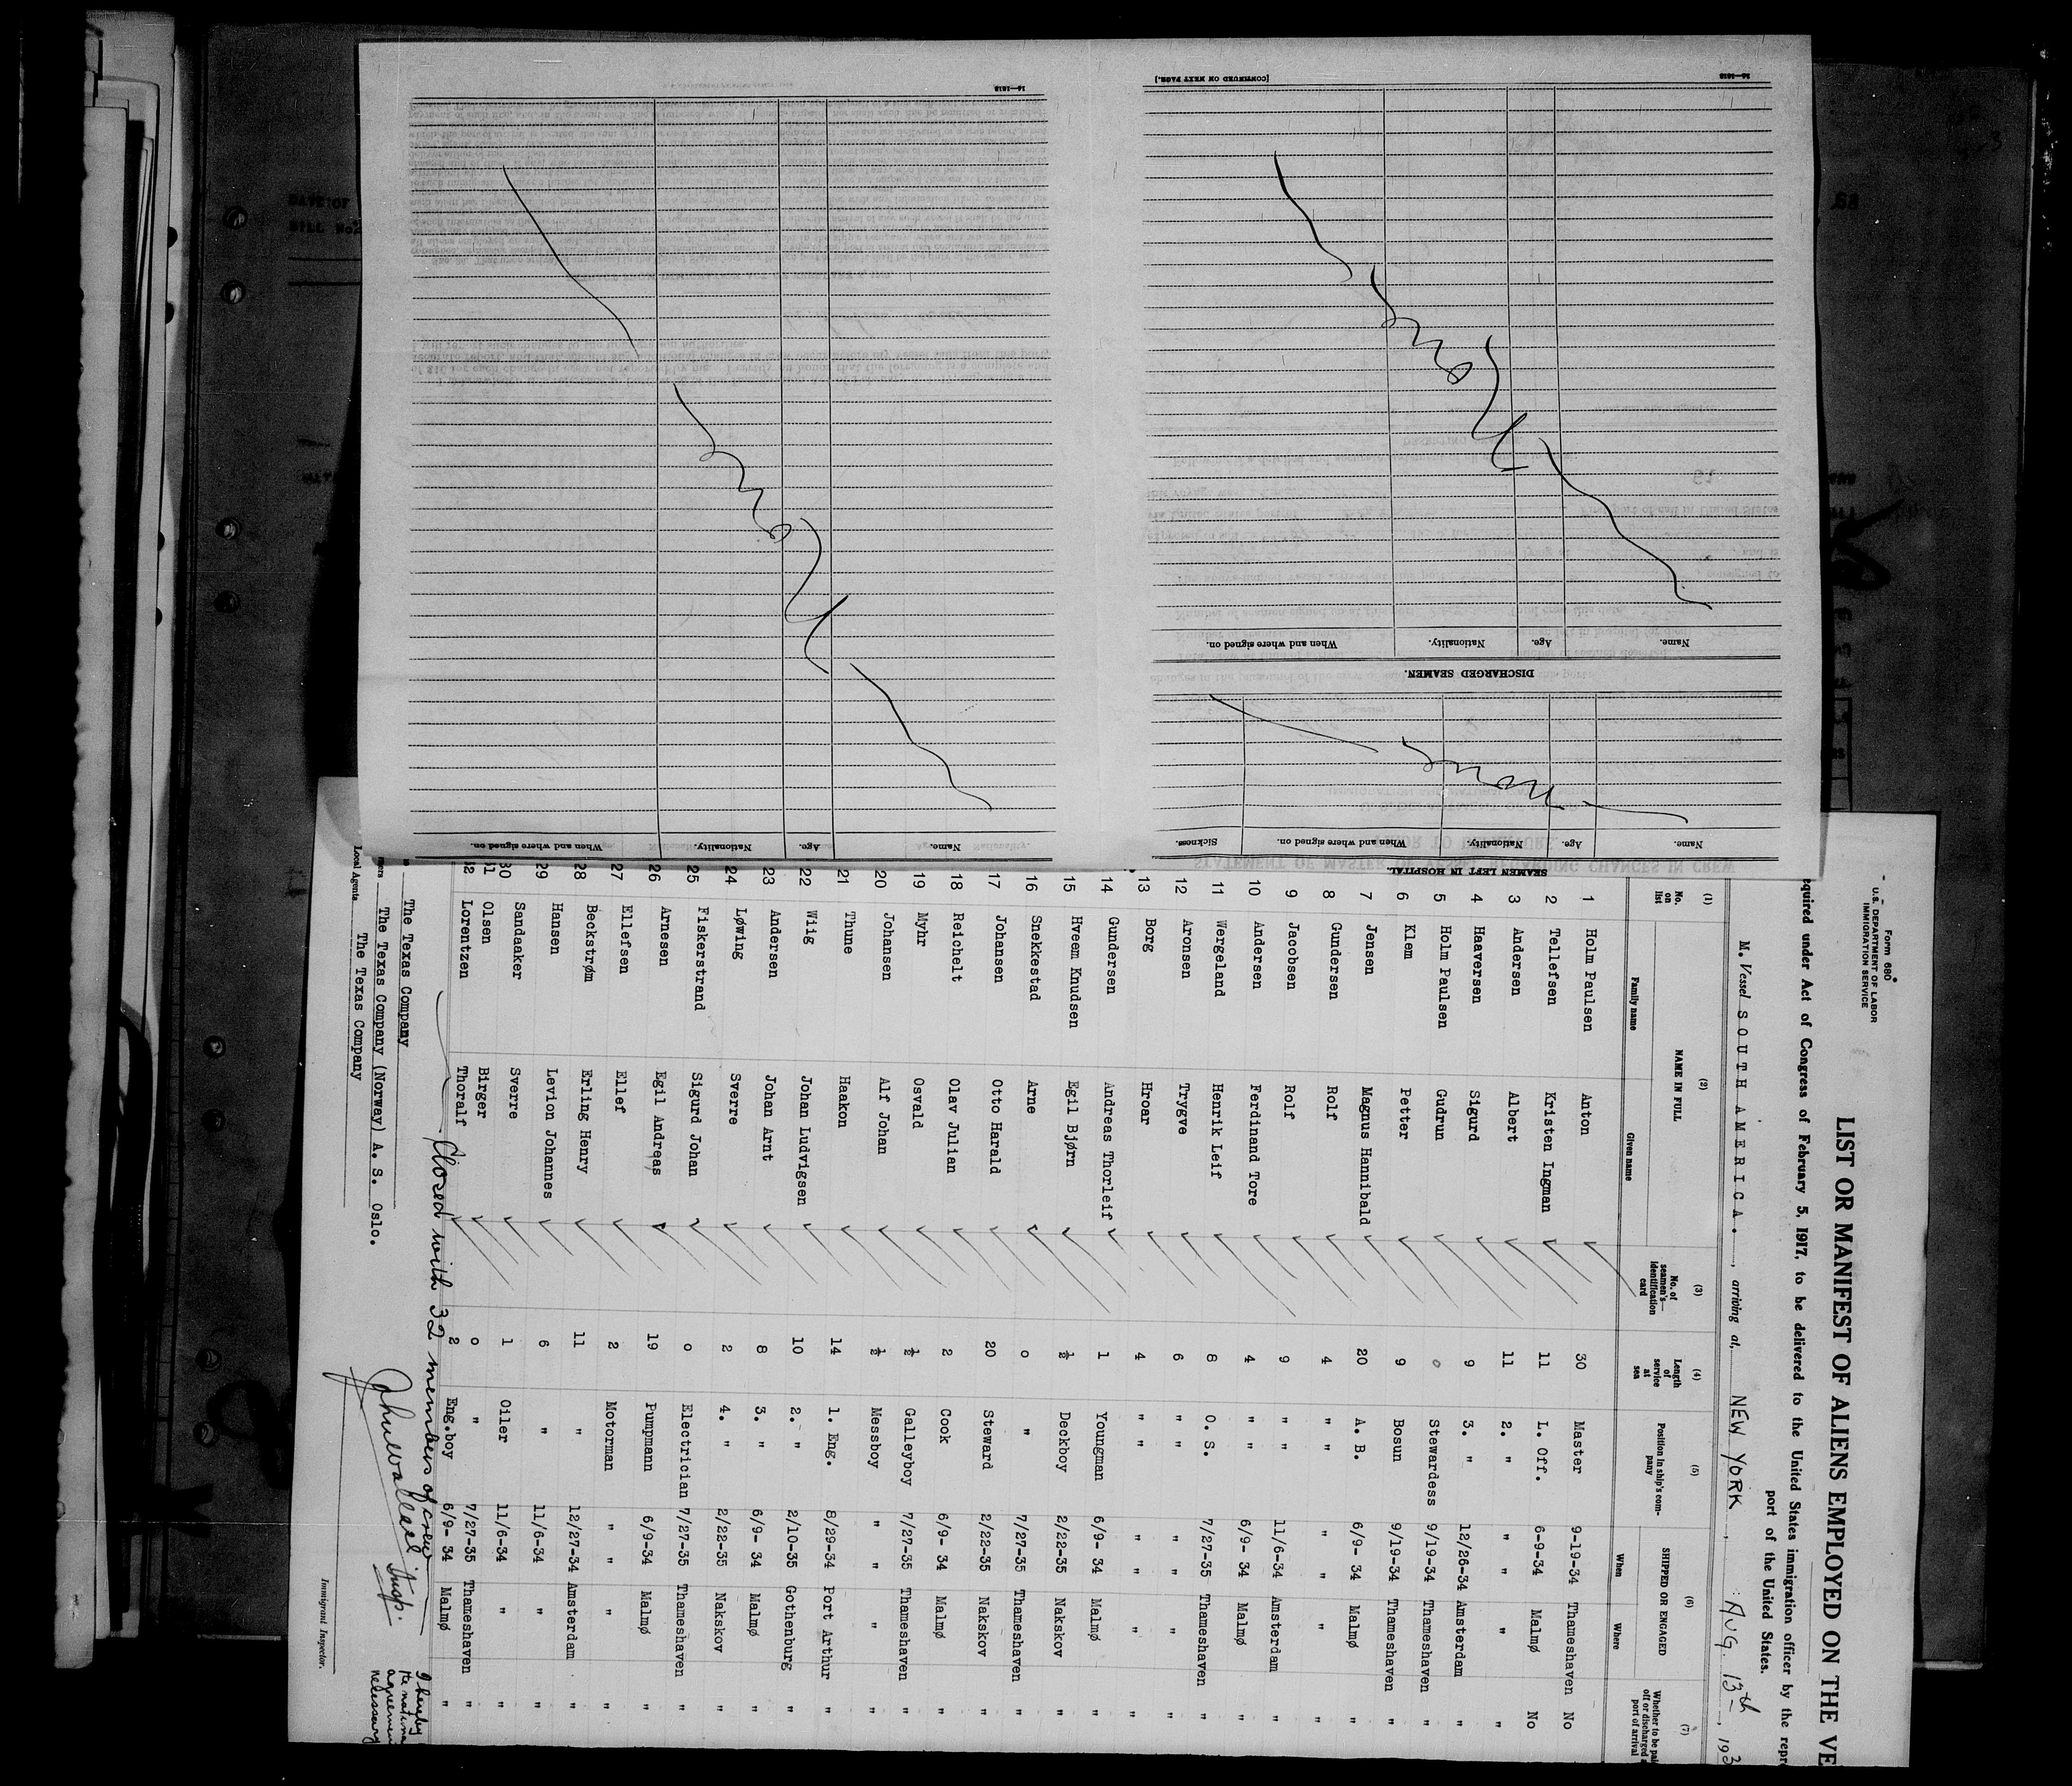 Form 680
U.S. DEPARTMENT OF LABOR
IMMIGRATION SERVICE
LIST OR MANIFEST OF ALIENS EMPLOYED ON THE VE
equired under Act of Congress of February 5, 1917, to be delivered to the United States immigration officer by the repr
port of the United States.
M. Vessel SOUTH AMERICA. , arriving at, NEW YORK , AUG. 13th , 193
(1) (2) (3) (4) (5) (6) (7)
No. on list NAME IN FULL No. of seamen's identification card Length of service at sea Position in ship's company SHIPPED OR ENGAGED Whether to be pai off or discharged a port of arrival
Family name Given name When Where
1 Holm Paulsen Anton 30 Master 9-19-34 Thameshaven No
2 Tellefsen Kristen Ingman 11 L. Off. 6-9-34 Malmø No
3 Andersen Albert 11 2. " " " " "
4 Haaversen Sigurd 9 3. " 12/26-34 Amsterdam "
5 Holm Paulsen Gudrun 0 Stewardess 9/19-34 Thameshaven "
6 Klem Petter 9 Bosun 9/19-34 Thameshaven "
7 Jensen Magnus Hannibald 20 A. B. 6/9- 34 Malmø "
8 Gundersen Rolf 4 " " " " " "
9 Jacobsen Rolf 9 " " 11/6-34 Amsterdam "
10 Andersen Ferdinand Tore 4 " " 6/9- 34 Malmø "
11 Wergeland Henrik Leif 8 O. S. 7/27-35 Thameshaven "
12 Aronsen Trygve 6 " " " " " "
13 Borg Hroar 4 " " " " " "
14 Gundersen Andreas Thorleif 1 Youngman 6/9- 34 Malmø "
15 Hveem Knudsen Egil Bjørn ½ Deckboy 2/22-35 Nakskov "
16 Snekkestad Arne 0 " 7/27-35 Thameshaven "
17 Johansen Otto Harald 20 Steward 2/22-35 Nakskov "
18 Reichelt Olav Julian 2 Cook 6/9- 34 Malmø "
19 Myhr Osvald ½ Galleyboy 7/27-35 Thameshaven "
20 Johansen Alf Johan ½ Messboy " " " "
21 Thune Haakon 14 1. Eng. 8/29-34 Port Arthur "
22 Wiig Johan Ludvigsen 10 2. " 2/10-35 Gothenburg "
23 Andersen Johan Arnt 8 3. " 6/9- 34 Malmø "
24 Løwing Sverre 2 4. " 2/22-35 Nakskov "
25 Fiskerstrand Sigurd Johan 0 Electrician 7/27-35 Thameshaven "
26 Arnesen Egil Andreas 19 Pumpmann 6/9-34 Malmø "
27 Ellefsen Ellef 2 Motorman " " " "
28 Beckstrøm Erling Henry 11 " 12/27-34 Amsterdam "
29 Hansen Levion Johannes 6 " 11/6-34 " "
30 Sandaaker Sverre 1 Oiler 11/6-34 " "
31 Olsen Birger 0 " 7/27-35 Thameshaven "
32 Lorentzen Thoralf 2 Eng.boy 6/9- 34 Malmø "
Closed with 32 members of crew
Insp.
The Texas Company
The Texas Company (Norway) A. S. Oslo.
Local Agents The Texas Company
Immigrant Inspector.
I hereby
necessary
SEAMEN LEFT IN HOSPITAL.
Name. Age. Nationality. When and where signed on. Sickness.
None
DISCHARGED SEAMEN.
Name. Age. Nationality. When and where signed on.
[CONTINUED ON NEXT PAGE.]
14—1618
Name. Age. Nationality. When and where signed on.
14—1618